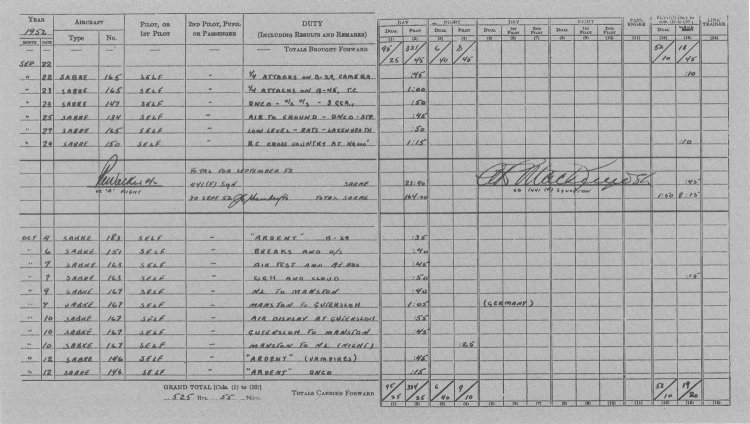 YEAR AIRCRAFT PILOT, OR 2ND PILOT, PUPIL DUTY DAY NIGHT DAY NIGHT PASS- LINK
1952 1ST PILOT OR PASSENGER (INCLUDING RESULTS AND REMARKS) DUAL PILOT DUAL PILOT DUAL 1ST PILOT 2ND PILOT DUAL 1ST PILOT 2ND PILOT ENGER DUAL TRAINER
MONTH DATE Type No. (1) (2) (3) (4) (5) (6) (7) (8) (9) (10) (11) (12) (13) (14)
— — — — TOTALS BROUGHT FORWARD 95/25 321/45 6/40 8/45 52/10 18/45
SEP 22
" 22 SABRE 165 SELF — 1/4 ATTACKS ON B-29, CAMERA :45 :10
" 23 SABRE 165 SELF — 1/4 ATTACKS ON B-45, T.C. 1:00
" 23 SABRE 147 SELF — DNCO - :50
" 25 SABRE 134 SELF — AIR TO GROUND - DNCO - STR. :45
" 27 SABRE 165 SELF — LOW LEVEL - RATS - LAKENHEATH :50
" 29 SABRE 150 SELF — RC CROSS COUNTRY AT 1:15 :10
TOTAL FOR SEPTEMBER 52
OC "A" FLIGHT 441 (F) Sqd. SABRE 23:40 :45
30 SEPT 52 TOTAL SABRE 164:00 CO 441 (F) SQUADRON 1:50 8:15
OCT 4 SABRE 183 SELF — "ARDENT" B-29 :35
" 6 SABRE 151 SELF — BREAKS AND :40
" 7 SABRE 163 SELF — AIR TEST AND AEROS :45
" 7 SABRE 163 SELF — GGH AND CLOUD :50 :15
" 9 SABRE 167 SELF — N.L. TO MANSTON :40
" 9 SABRE 167 SELF — MANSTON TO GUTERSLOH 1:05 (GERMANY)
" 10 SABRE 167 SELF — AIR DISPLAY AT GUTERSLOH :55
" 10 SABRE 167 SELF — GUTERSLOH TO MANSTON :45
" 10 SABRE 167 SELF — MANSTON TO N.L. (NIGHT) :25
" 12 SABRE 146 SELF — "ARDENT" (VAMPIRES) :45
" 12 SABRE 146 SELF — "ARDENT" DNCO :15
GRAND TOTAL [Cols. (1) to (10)] TOTALS CARRIED FORWARD 95/25 334/25 6/40 9/10 52/10 19/20
525 Hrs. 55 Mins. (1) (2) (3) (4) (5) (6) (7) (8) (9) (10) (11) (12) (13) (14)